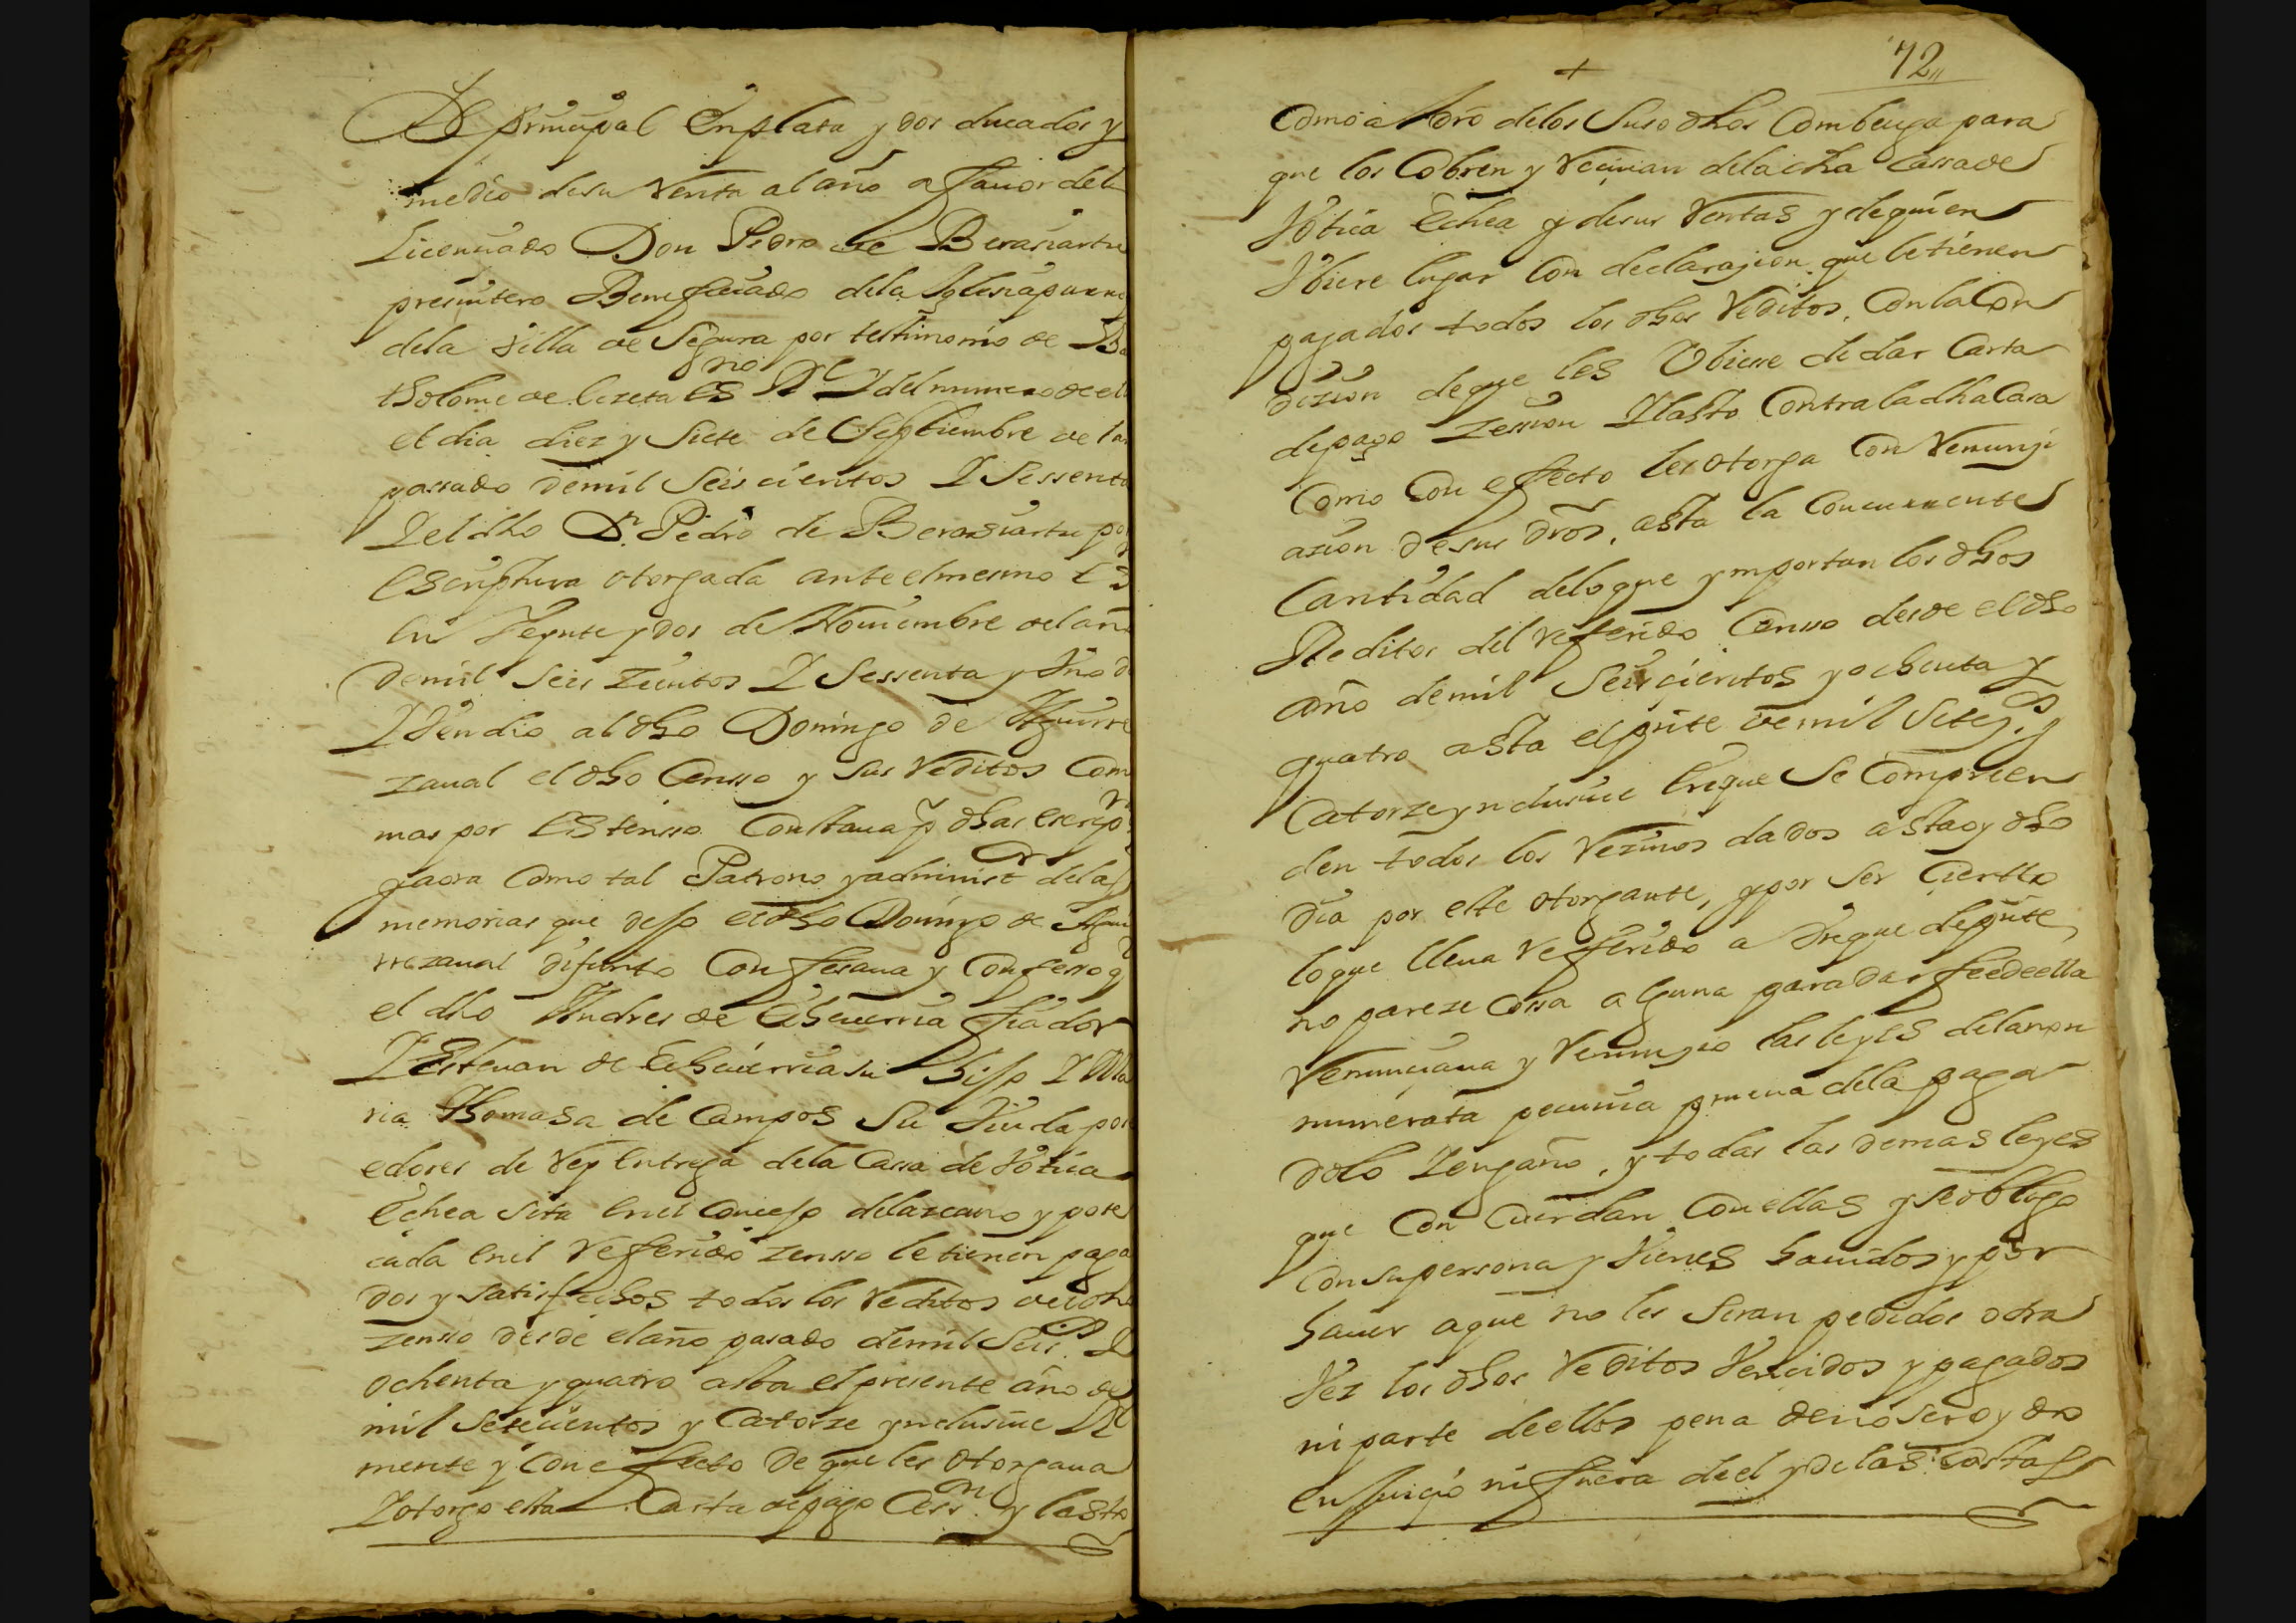 De prinçipal En plata y dos ducados y
medio de su Renta al año a fauor del
Licençiado Don Pedro de Berasiartu
presuitero Benefiçiado dela Iglesia parrni
dela Villa de Segura por testimonio de Ba
tholome de Lezeta esno Rl y del numero de ell
el dia diez y Siete de Septiembre de l an
passado demil Seiscientos Y Sessenta
Y el dho Dn Pedro de Berasiartu por
Escriptura otorgada ante el mesmo Es
en Veynte y dos de Nouiembre del año
demil Seis Zientos Y Sessenta y Uno
Y Vendio al dho Domingo de Aguirre
zaual el dho Censso y sus Reditos Com
mas por Estenso Constaua pr dhas escrip
y aora Como tal Patrono y administr delas
memorias que dejo el dho Domingo de Agui
rrezaual difunto Confesaua y Confesso q
el dho Andres de Echauerria fiador
Y Esteuan de Echauerria su hijo Y Ma
ria Thomasa de Campos Su Viuda pose
edores de Rey Entrega dela Cassa de Votica
Echea sita En el Conçejo de Lazcano y pote
cada En el Referido Zensso le tienen paga
dos y satisfechos todos los Reditos de dho
Zensso desde el año pasado demil Seis.s Y
ochenta y quatro asta el presente año de
mil Seteçientos y Catorze ynclusiue Rl
mente y Con efecto De que les otorgaua
Y otorgo esta Carta de pago Cess.n y lasto
72
+
Como a dro delos Suso dhos Combenga para
que los Cobren y Reçiuan dela dha Cassa de
Votica Echea y de sus Rentas y de quien
Vbiere lugar Con declaraçion que le tienen
pagados todos los dhos Reditos, Con la Con
diçion de que les Vbiesse de dar Carta
de pago Zession Y lasto Contra la dha Casa
Como Con efecto les otorga Con Renunçi
açion de sus dros, asta la Concurrente
Cantidad delo que ymportan los dhos
Reditos del referido Censso desde el dho
año demil Seiscientos y ochenta y
quatro asta el pnte de mil Setez.s y
Catorze ynclusiue En que Se Comprien
den todos los Reziuos dados asta oy dho
dia por este otorgante, y por Ser Cierto
lo que lleua Referido a Vnque de pnte
no pareze Cossa alguna para dar fee de ella
Renunçiaua y Renunçio las leyes dela non
numerata pecunia prueua dela paga
dolo Y engaño, y todas las demas leyes
que Con Cuerdan Con ellas y se obligo
Con su persona y Vienes hauidos y por
hauer a que no les Seran pedidos otra
Vez los dhos Reditos Vencidos y pagados
ni parte de ellos pena de no ser oydo
En Juiçio ni fuera de el y de las Costas